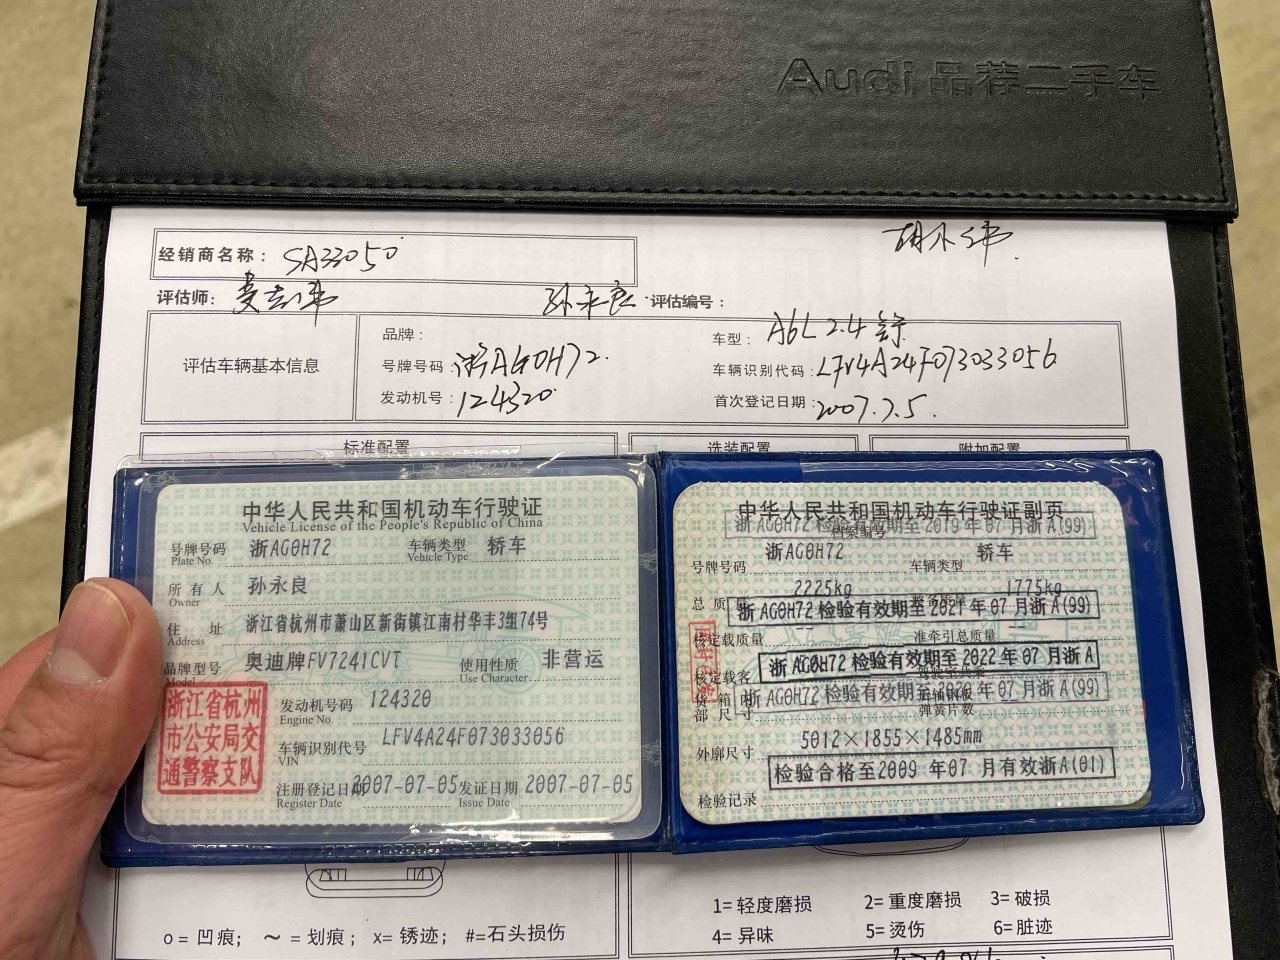 Audi 品荐二手车
胡小纬
经销商名称： SA33050
评估师：
孙永良 评估编号：
评估车辆基本信息
品牌：
车型： A6L 2.4
号牌号码： 浙AG0H72
车辆识别代码： LFV4A24F073033056
发动机号： 124320
首次登记日期： 2007.7.5.
标准配置 选装配置 附加配置
中华人民共和国机动车行驶证
Vehicle License of the People's Republic of China
号牌号码 浙AG0H72 车辆类型 轿车
Plate No. Vehicle Type
所有人 孙永良
Owner
住址 浙江省杭州市萧山区新街镇江南村华丰3组74号
Address
品牌型号 奥迪牌FV7241CVT 使用性质 非营运
Model Use Character
浙江省杭州
市公安局交
通警察支队
发动机号码 124320
Engine No.
车辆识别代号 LFV4A24F073033056
VIN
注册登记日期 2007-07-05 发证日期 2007-07-05
Register Date Issue Date
中华人民共和国机动车行驶证副页
浙AG0H72 检验有效期至2019年07月浙A(99)
档案编号
浙AG0H72 轿车
号牌号码 车辆类型
2225kg 1775kg
总质量
浙AG0H72 检验有效期至2021年07月浙A(99)
核定载质量 准牵引总质量
浙AG0H72 检验有效期至2022年07月浙A
核定载客
浙AG0H72 检验有效期至2020年07月浙A(99)
货箱内
部尺寸 弹簧片数
外廓尺寸 5012×1855×1485mm
检验合格至2009年07月有效浙A(01)
检验记录
o = 凹痕； ～ = 划痕； x= 锈迹； #=石头损伤
1= 轻度磨损 2= 重度磨损 3= 破损
4= 异味 5= 烫伤 6= 脏迹